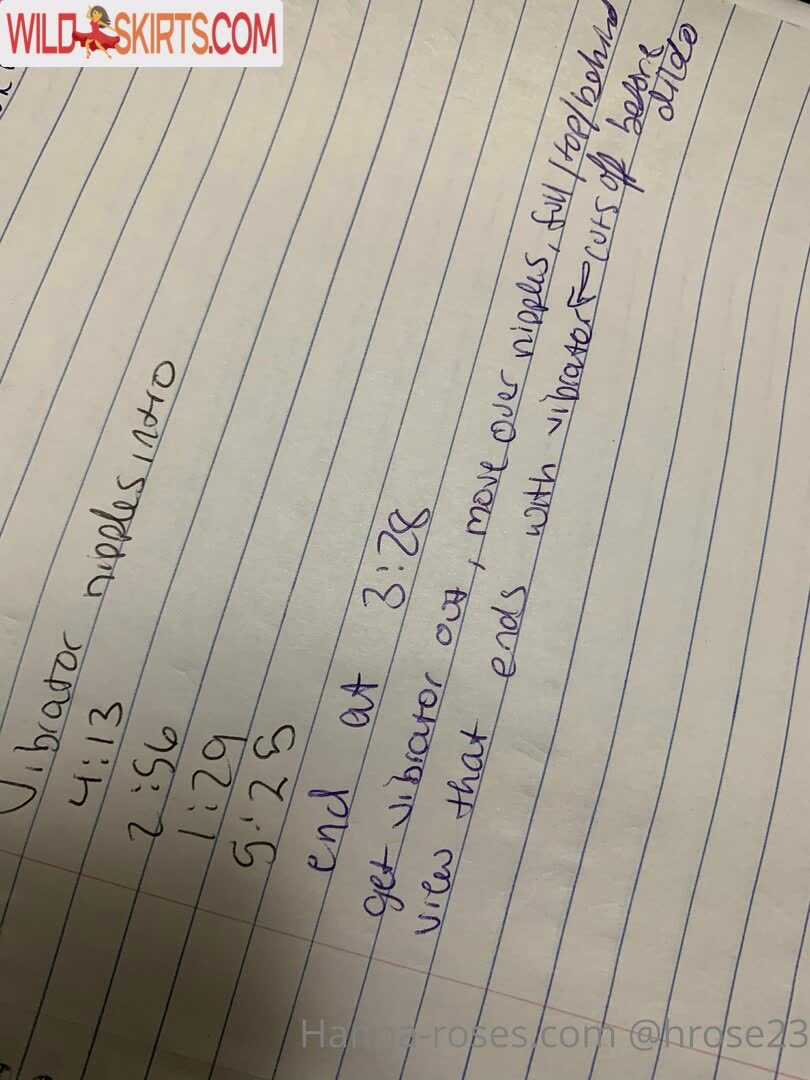 WILD SKIRTS.COM
Vibrator nipples intro
4:13
2:56
1:29
5:25
end at 3:28
get vibrator out, move over nipples, full/top/behind
view that ends with vibrator cuts off before
dildo
Hanna-roses.com @hrose23